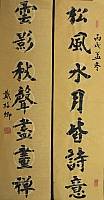 松風水月皆詩意
丙戌孟冬
雲影秋聲盡畫禪